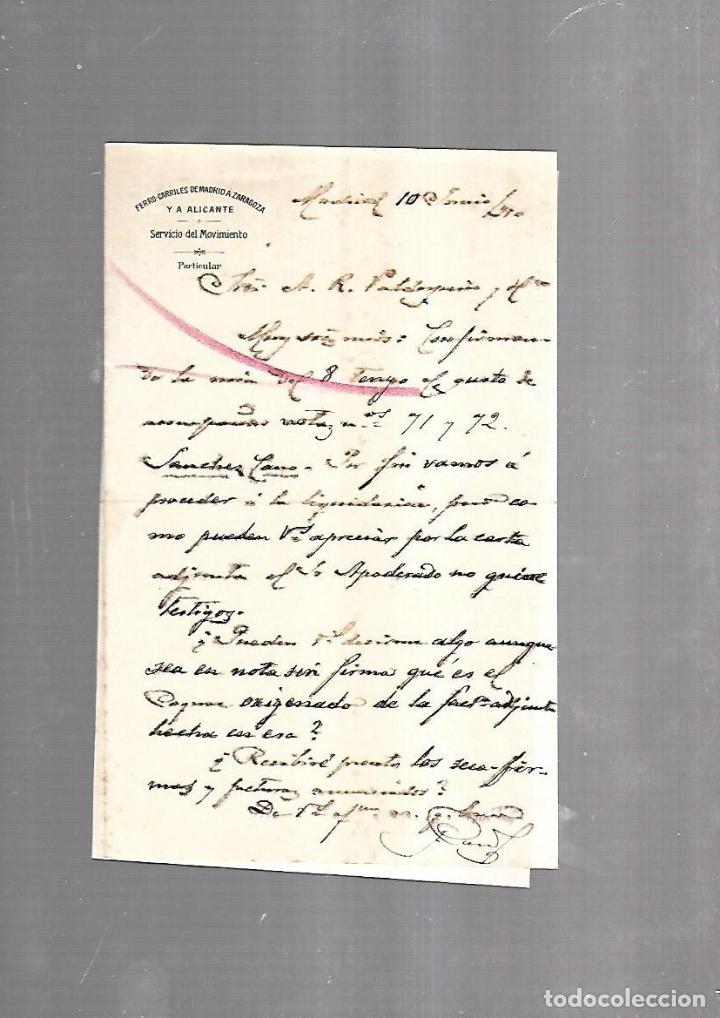 FERRO-CARRILES DE MADRID A ZARAGOZA
Y A ALICANTE
Servicio del Movimiento
Particular
Madrid 10 Junio
A. R. Valdespino y
Muy mios: Confirman-
do la mia del 8 tengo el gusto de
acompañar notas n.os 71 y 72.
Sanchez Cano. Por fin vamos á
proceder á la liquidación, pero co-
mo pueden Vs apreciar por la carta
adjunta el Sr Apoderado no quiere
testigos.
¿Pueden Vs decirme algo aunque
sea en nota sin firma qué es el
Cognac oxigenado de la fact.a adjunta
hecha en esa?
¿Recibiré pronto las
y facturas anunciadas?
De Vs
todocoleccion.net